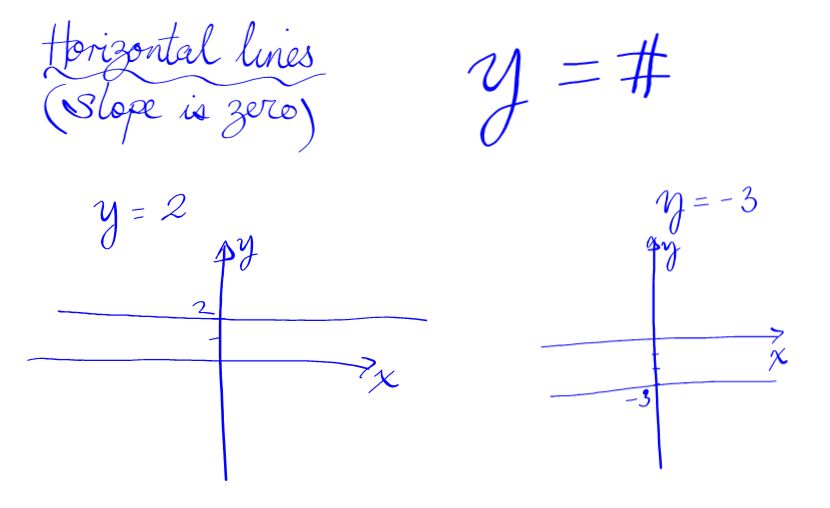 Horizontal lines
(slope is zero)
y = #
y = 2
y
2
x
y = -3
y
x
-3